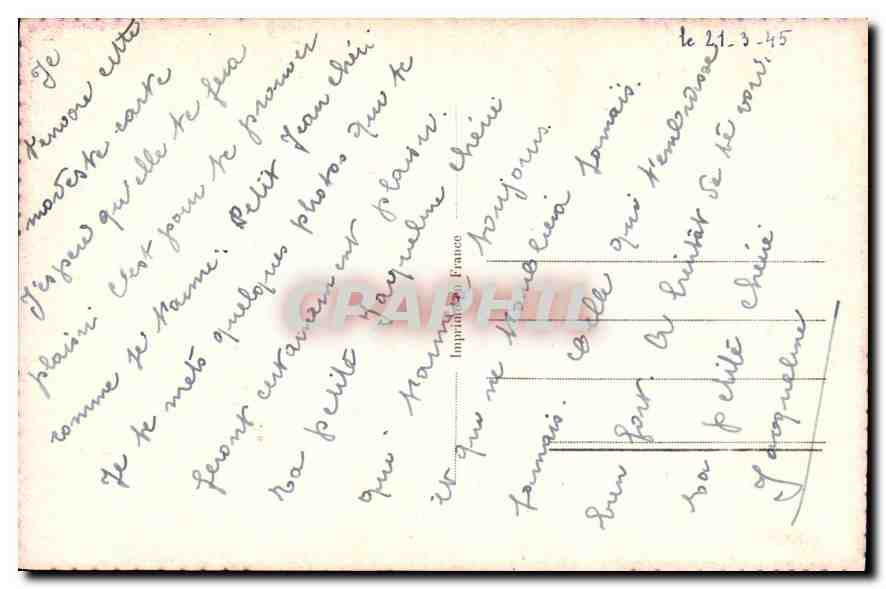 le 21-3-45
Je
t'envoie cette
modeste carte
J'espère qu'elle te fera
plaisir. C'est pour te prouver
comme je t'aime. Petit Jean chéri
Je te mets quelques photos qui te
feront certainement plaisir.
Ta petite Jacqueline chérie
qui t'aimera toujours
et qui ne t'oubliera jamais.
Jamais. Celle qui t'embrasse
bien fort. A bientôt de te voir.
ta petite chérie
Jacqueline
Imprimé en France
CPAPHIL